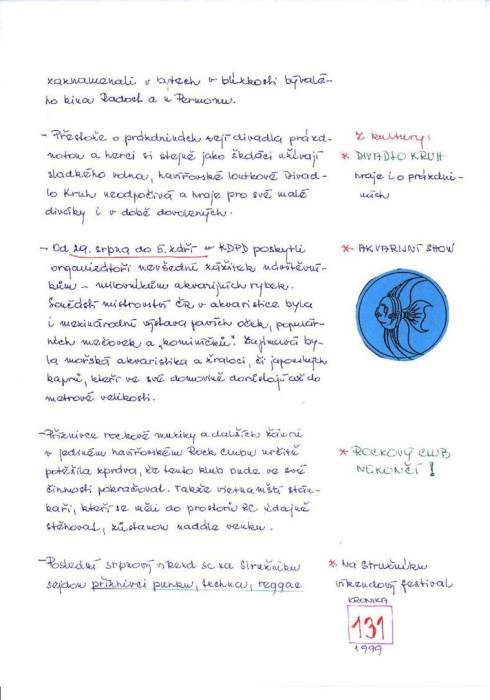 zaznamenali v bytech v blízkosti býval-
ho kina Radost a u Permonu.
– Přestože o prázdninách zejí divadla prázd-
notou a herci si stejně jako školáci užívají
sladkého volna, havířovské loutkové Divad-
lo Kruh neodpočívá a hraje pro své malé
diváky i v době dovolených.
Z kultury:
* DIVADLO KRUH
hraje i o prázdni-
nách
– Od 29. srpna do 5. září v KDPD poskytli
organizátoři nevšední zážitek návštěvní-
kům – milovníkům akvarijních rybek.
Součástí mistrovství ČR v akvaristice byla
i mezinárodní výstava pavích oček, populár-
ních mečovek a „komíníčků". Zajímavá by-
la mořská akvaristika a žraloci, či japonských
kaprů, kteří ve své domovině dorůstají až do
metrové velikosti.
* AKVARIJNÍ SHOW
– Příznivce rockové muziky a dalších žánrů
v jediném havířovském Rock Clubu určitě
potěšila zpráva, že tento klub bude ve své
činnosti pokračovat. Takže vietnamští stán-
kaři, kteří se měli do prostorů RC údajně
stěhovat, zůstanou nadále venku.
* ROCKOVÝ CLUB
NEKONČÍ!
– Poslední srpnový víkend se na Stružníku
sejdou příznivci punku, techna, reggae
* Na Stružníku
víkendový festival
KRONIKA
131
1999